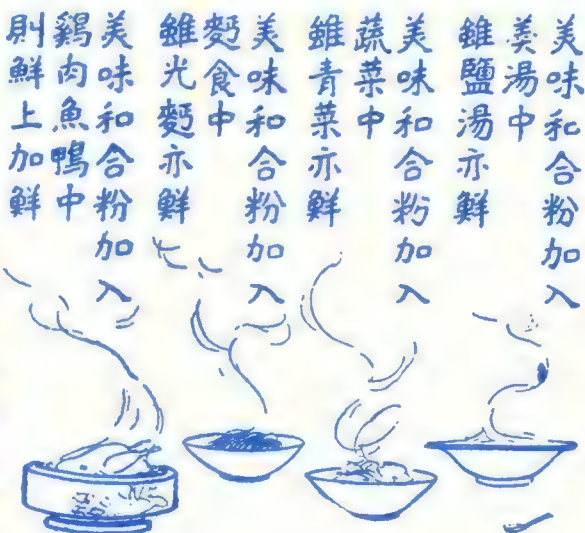 美味和合粉加入
羹湯中
雖鹽湯亦鮮
美味和合粉加入
蔬菜中
雖青菜亦鮮
美味和合粉加入
麫食中
雖光麫亦鮮
美味和合粉加入
鷄肉魚鴨中
則鮮上加鮮